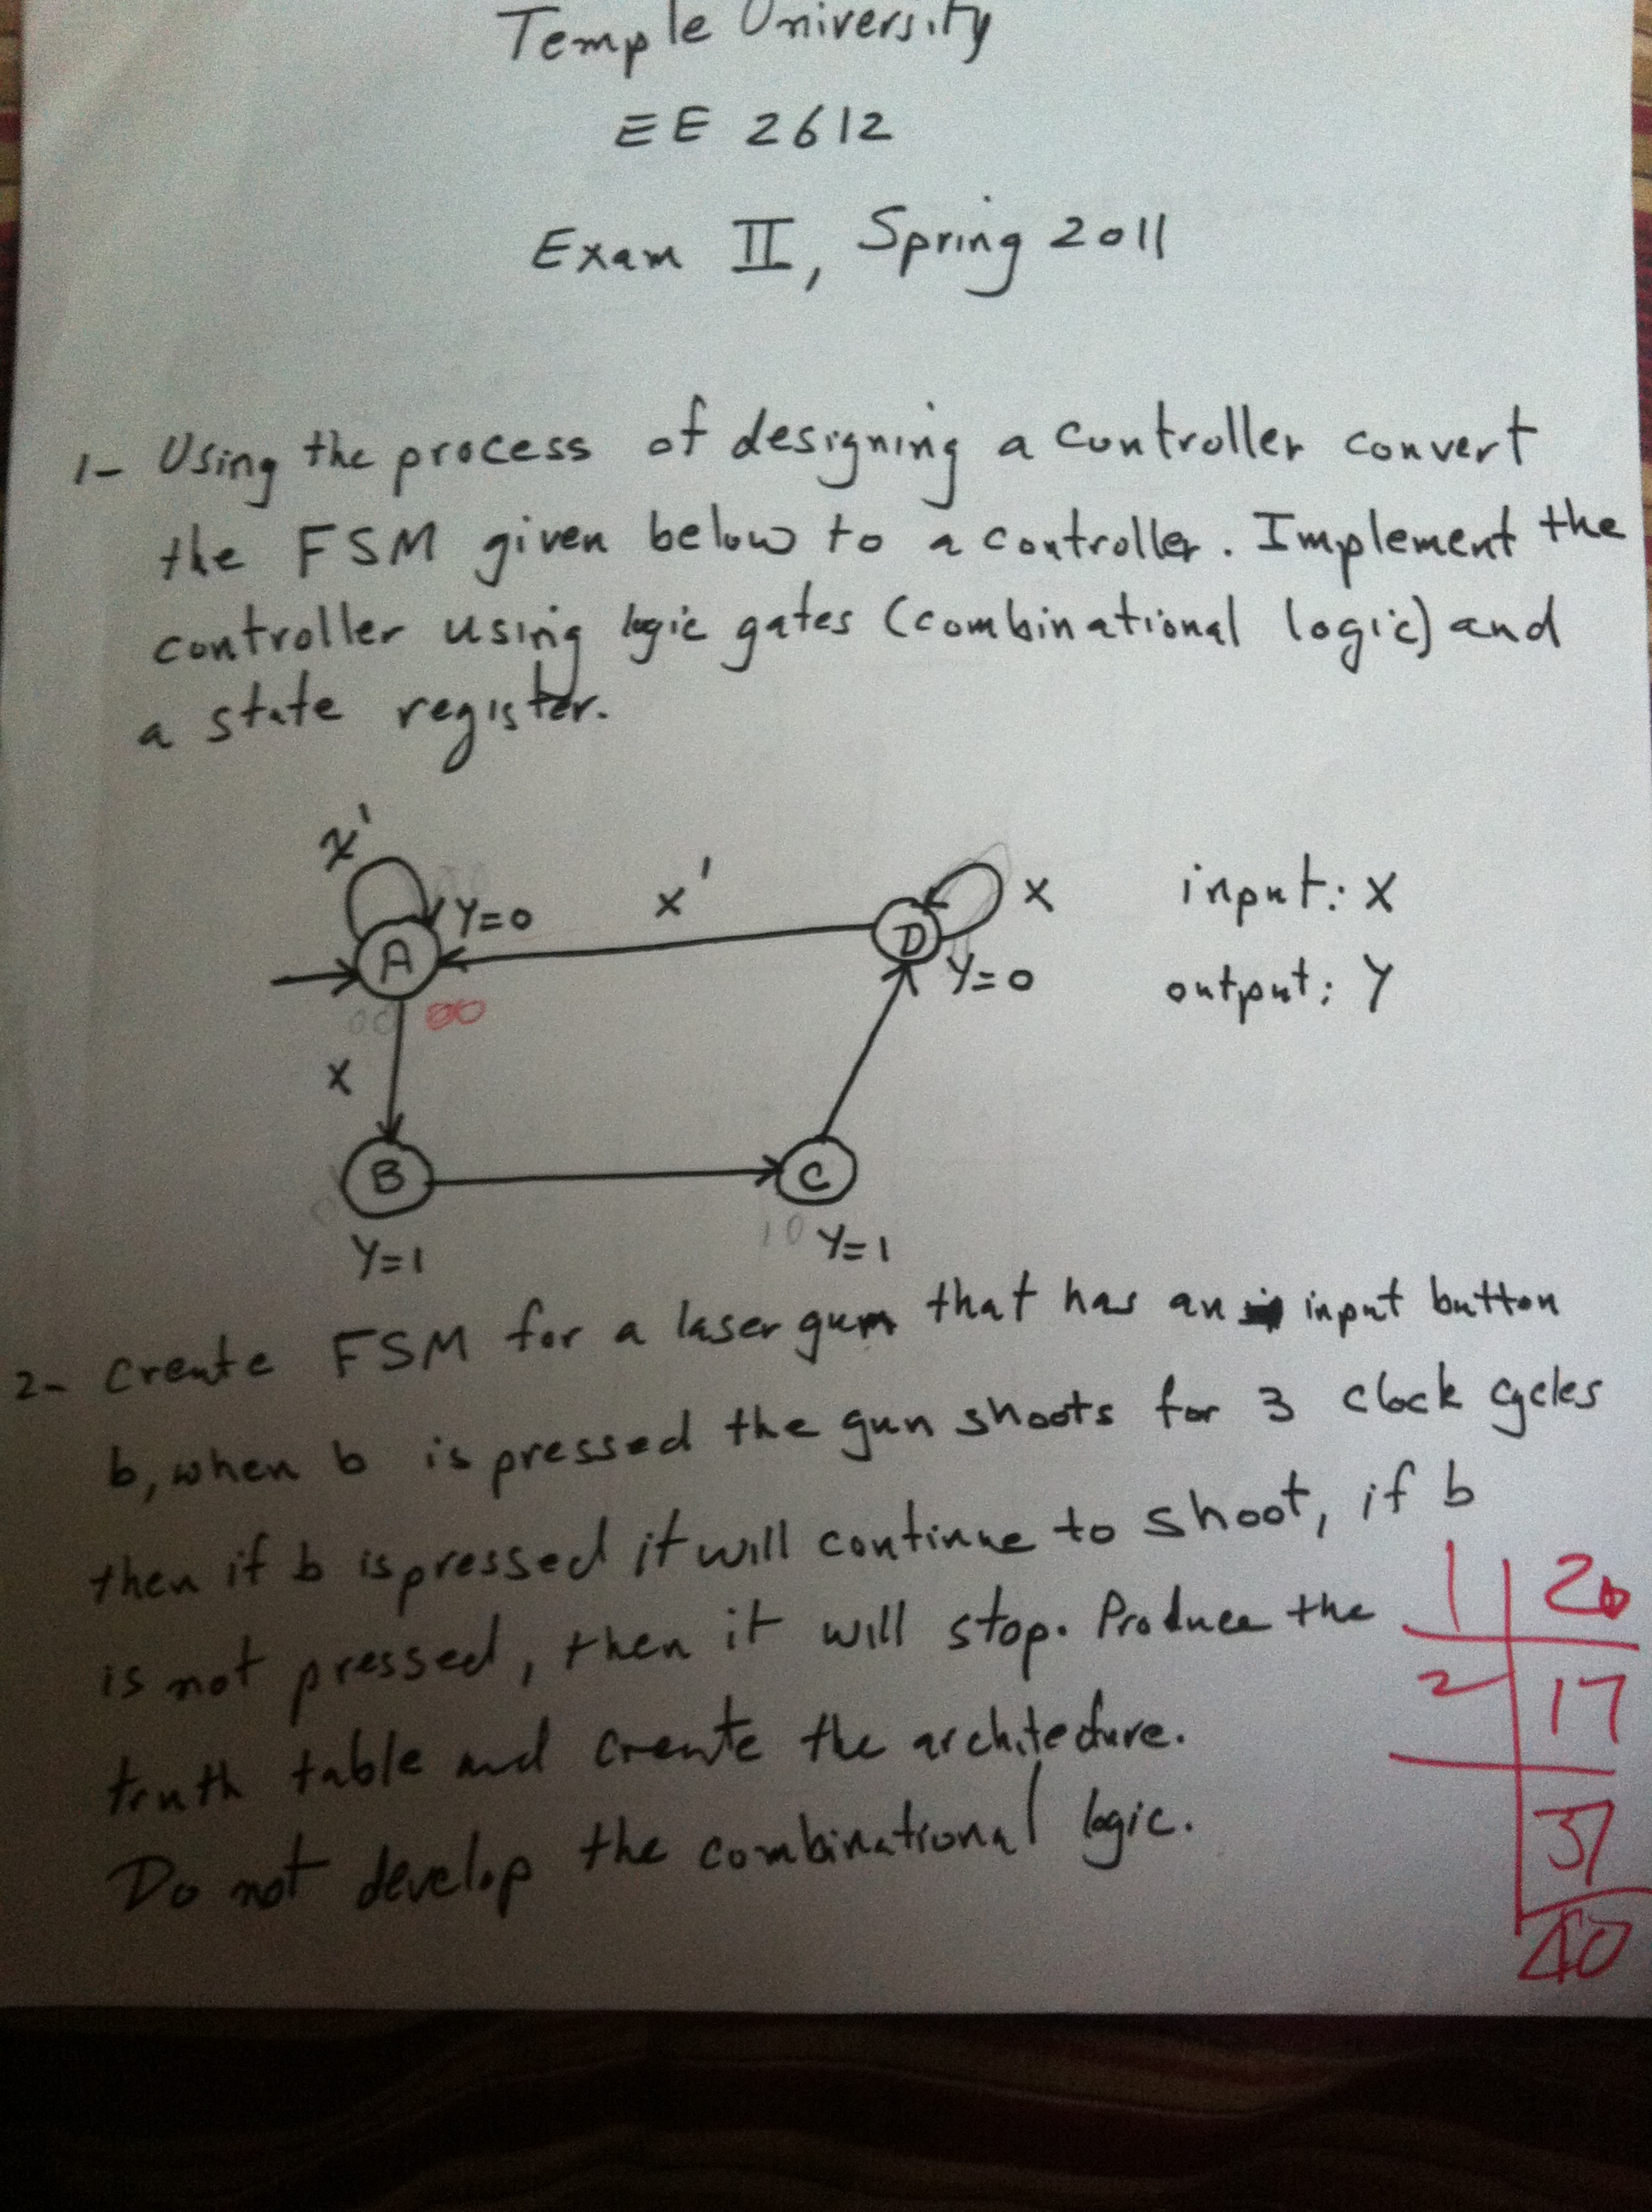 Temple University
EE 2612
Exam II, Spring 2011
1- Using the process of designing a controller convert
the FSM given below to a controller. Implement the
controller using logic gates (combinational logic) and
a state register.
x'
Y=0
x'
D
x
input: X
A
Y=0
output: Y
00 00
x
B
C
10
Y=1
Y=1
2- Create FSM for a laser gun that has an input button
b, when b is pressed the gun shoots for 3 clock cycles
then if b is pressed it will continue to shoot, if b
is not pressed, then it will stop. Produce the
truth table and create the architecture.
Do not develop the combinational logic.
1 20
2 17
37
40